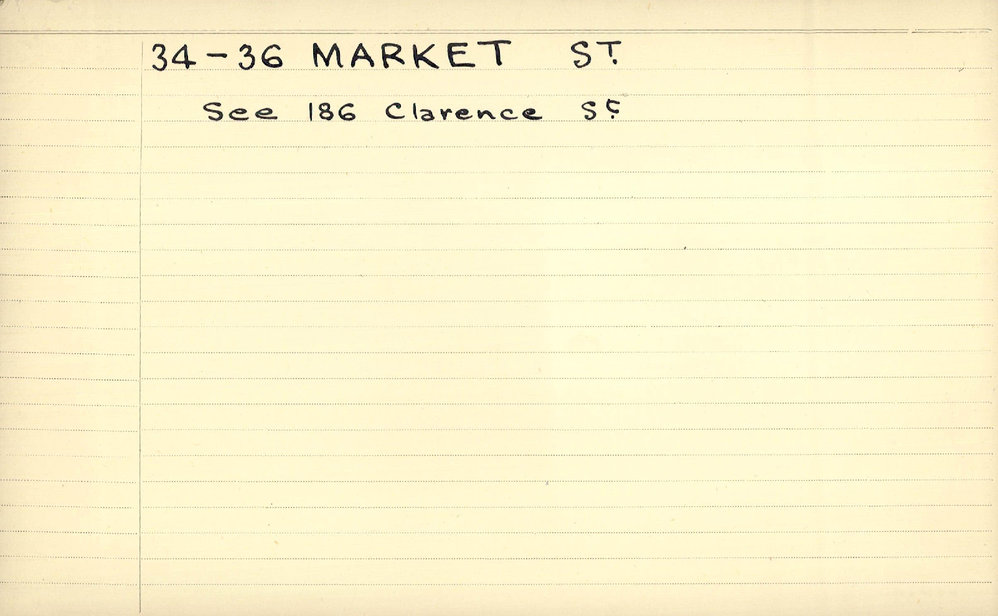 34-36 MARKET ST.
See 186 Clarence St